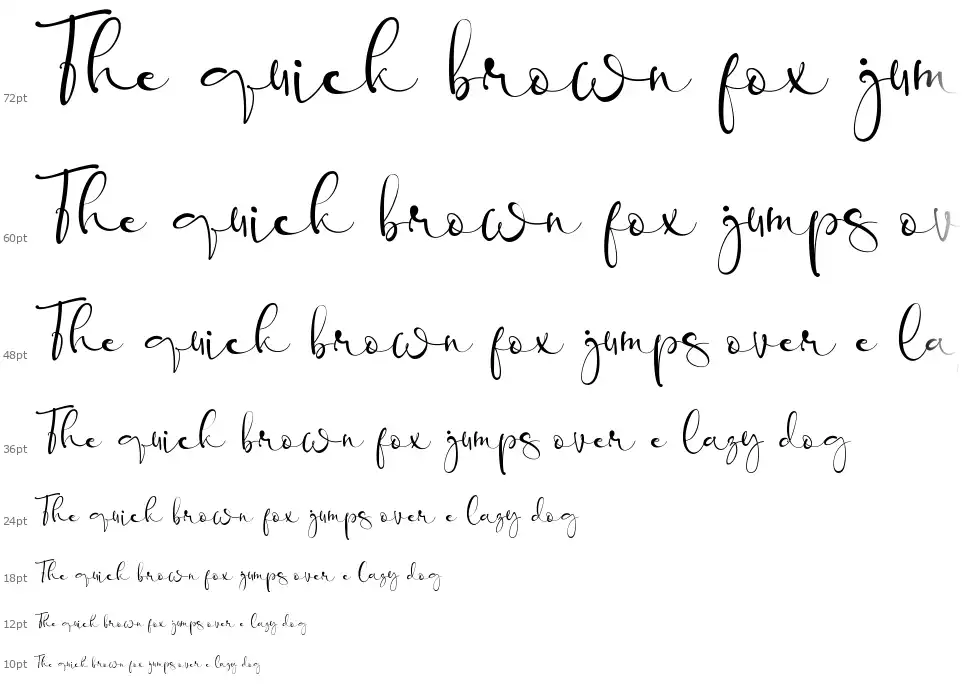 72pt The quick brown fox jum
60pt The quick brown fox jumps ov
48pt The quick brown fox jumps over e la
36pt The quick brown fox jumps over e lazy dog
24pt The quick brown fox jumps over e lazy dog
18pt The quick brown fox jumps over e lazy dog
12pt The quick brown fox jumps over e lazy dog
10pt The quick brown fox jumps over e lazy dog